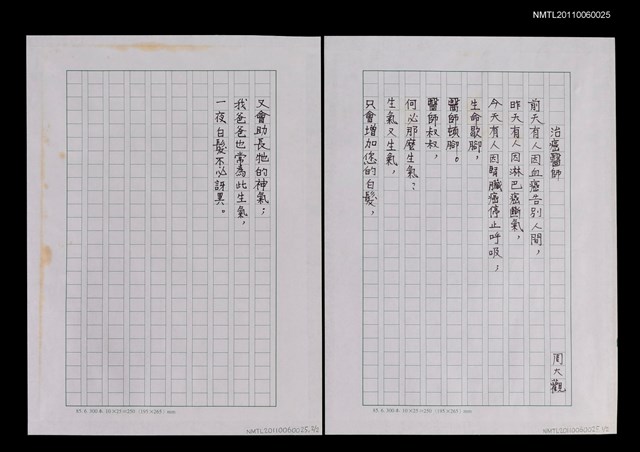 NMTL20110060025
治癌醫師
周大觀
前天有人因血癌告別人間，
昨天有人因淋巴癌斷氣，
今天有人因腎臟癌停止呼吸；
生命歇腳，
醫師頓腳。
醫師叔叔，
何必那麼生氣？
生氣又生氣，
只會增加您的白髮，
85. 6. 300本 10×25=250 (195×265) mm
NMTL20110060025 1/2
又會助長牠的神氣；
我爸爸也常為此生氣，
一夜白髮不必訝異。
85. 6. 300本 10×25=250 (195×265) mm
NMTL20110060025 2/2